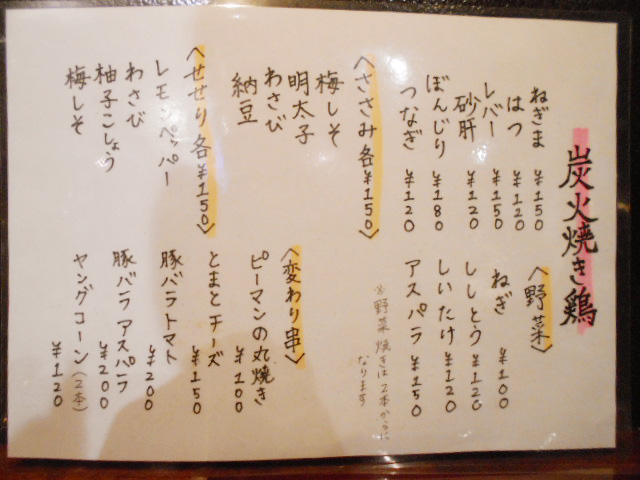 炭火焼き鶏
ねぎま ¥150
はつ ¥120
レバー ¥150
砂肝 ¥120
ぼんじり ¥180
つなぎ ¥120
〈ささみ各¥150〉
梅しそ
明太子
わさび
納豆
〈せせり各¥150〉
レモンペッパー
わさび
柚子こしょう
梅しそ
〈野菜〉
ねぎ ¥100
ししとう ¥120
しいたけ ¥120
アスパラ ¥150
※野菜焼きは2本からに
なります
〈変わり串〉
ピーマンの丸焼き ¥100
とまとチーズ ¥150
豚バラトマト ¥200
豚バラアスパラ ¥200
ヤングコーン(2本) ¥120